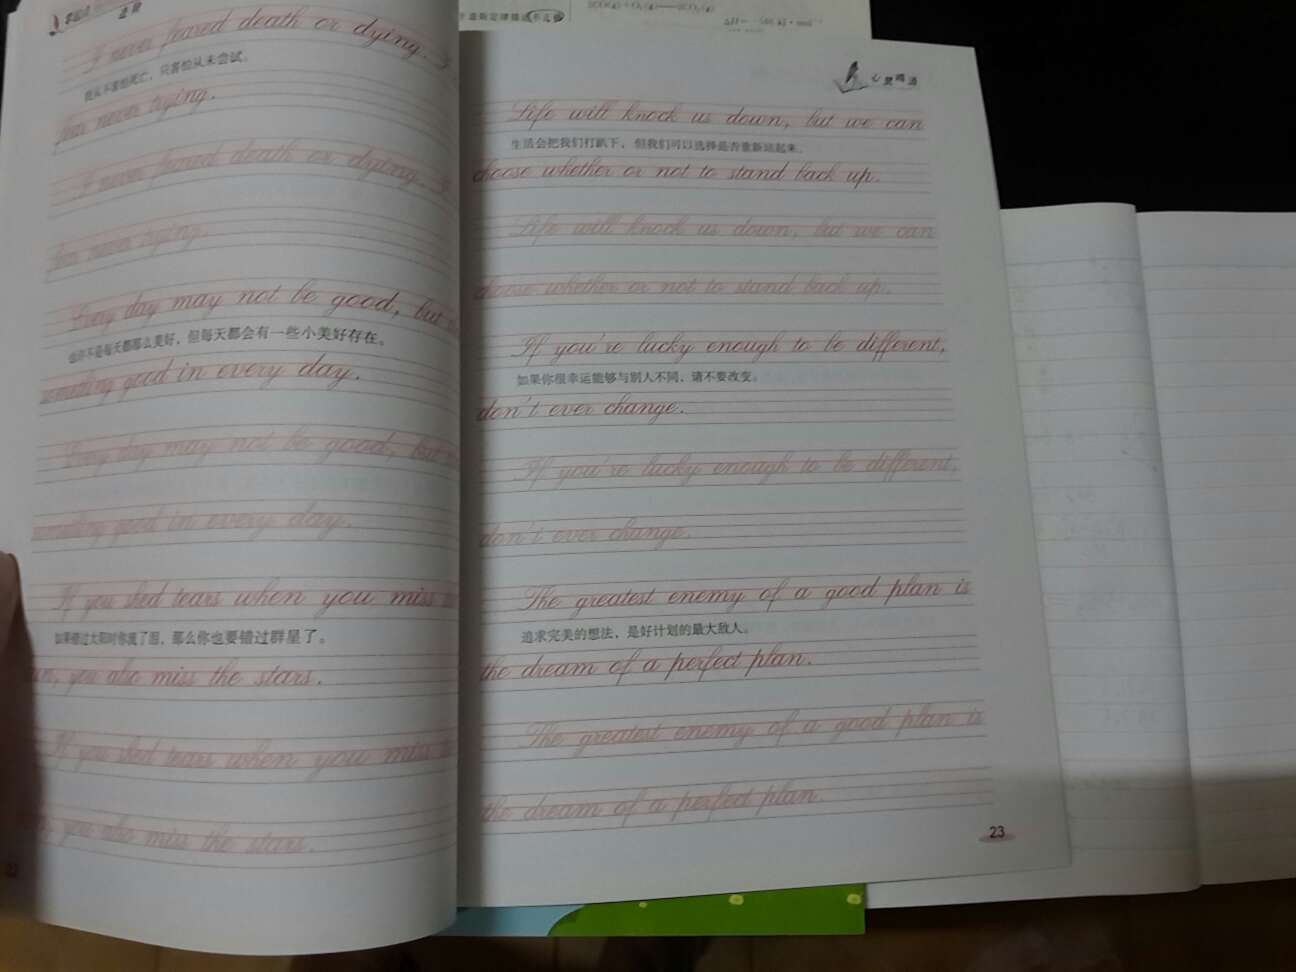 I never feared death or dying.
我从不害怕死亡，只害怕从未尝试。
fear never trying.
I never feared death or dying.
fear never trying.
Every day may not be good, but
也许不是每天都那么美好，但每天都会有一些小美好存在。
something good in every day.
Every day may not be good, but
something good in every day.
If you shed tears when you miss
如果错过太阳时你流了泪，那么你也要错过群星了。
you also miss the stars.
If you shed tears when you miss
you also miss the stars.
心灵鸡汤
Life will knock us down, but we can
生活会把我们打趴下，但我们可以选择是否重新站起来。
choose whether or not to stand back up.
Life will knock us down, but we can
choose whether or not to stand back up.
If you're lucky enough to be different,
如果你很幸运能够与别人不同，请不要改变。
don't ever change.
If you're lucky enough to be different,
don't ever change.
The greatest enemy of a good plan is
追求完美的想法，是好计划的最大敌人。
the dream of a perfect plan.
The greatest enemy of a good plan is
the dream of a perfect plan.
23